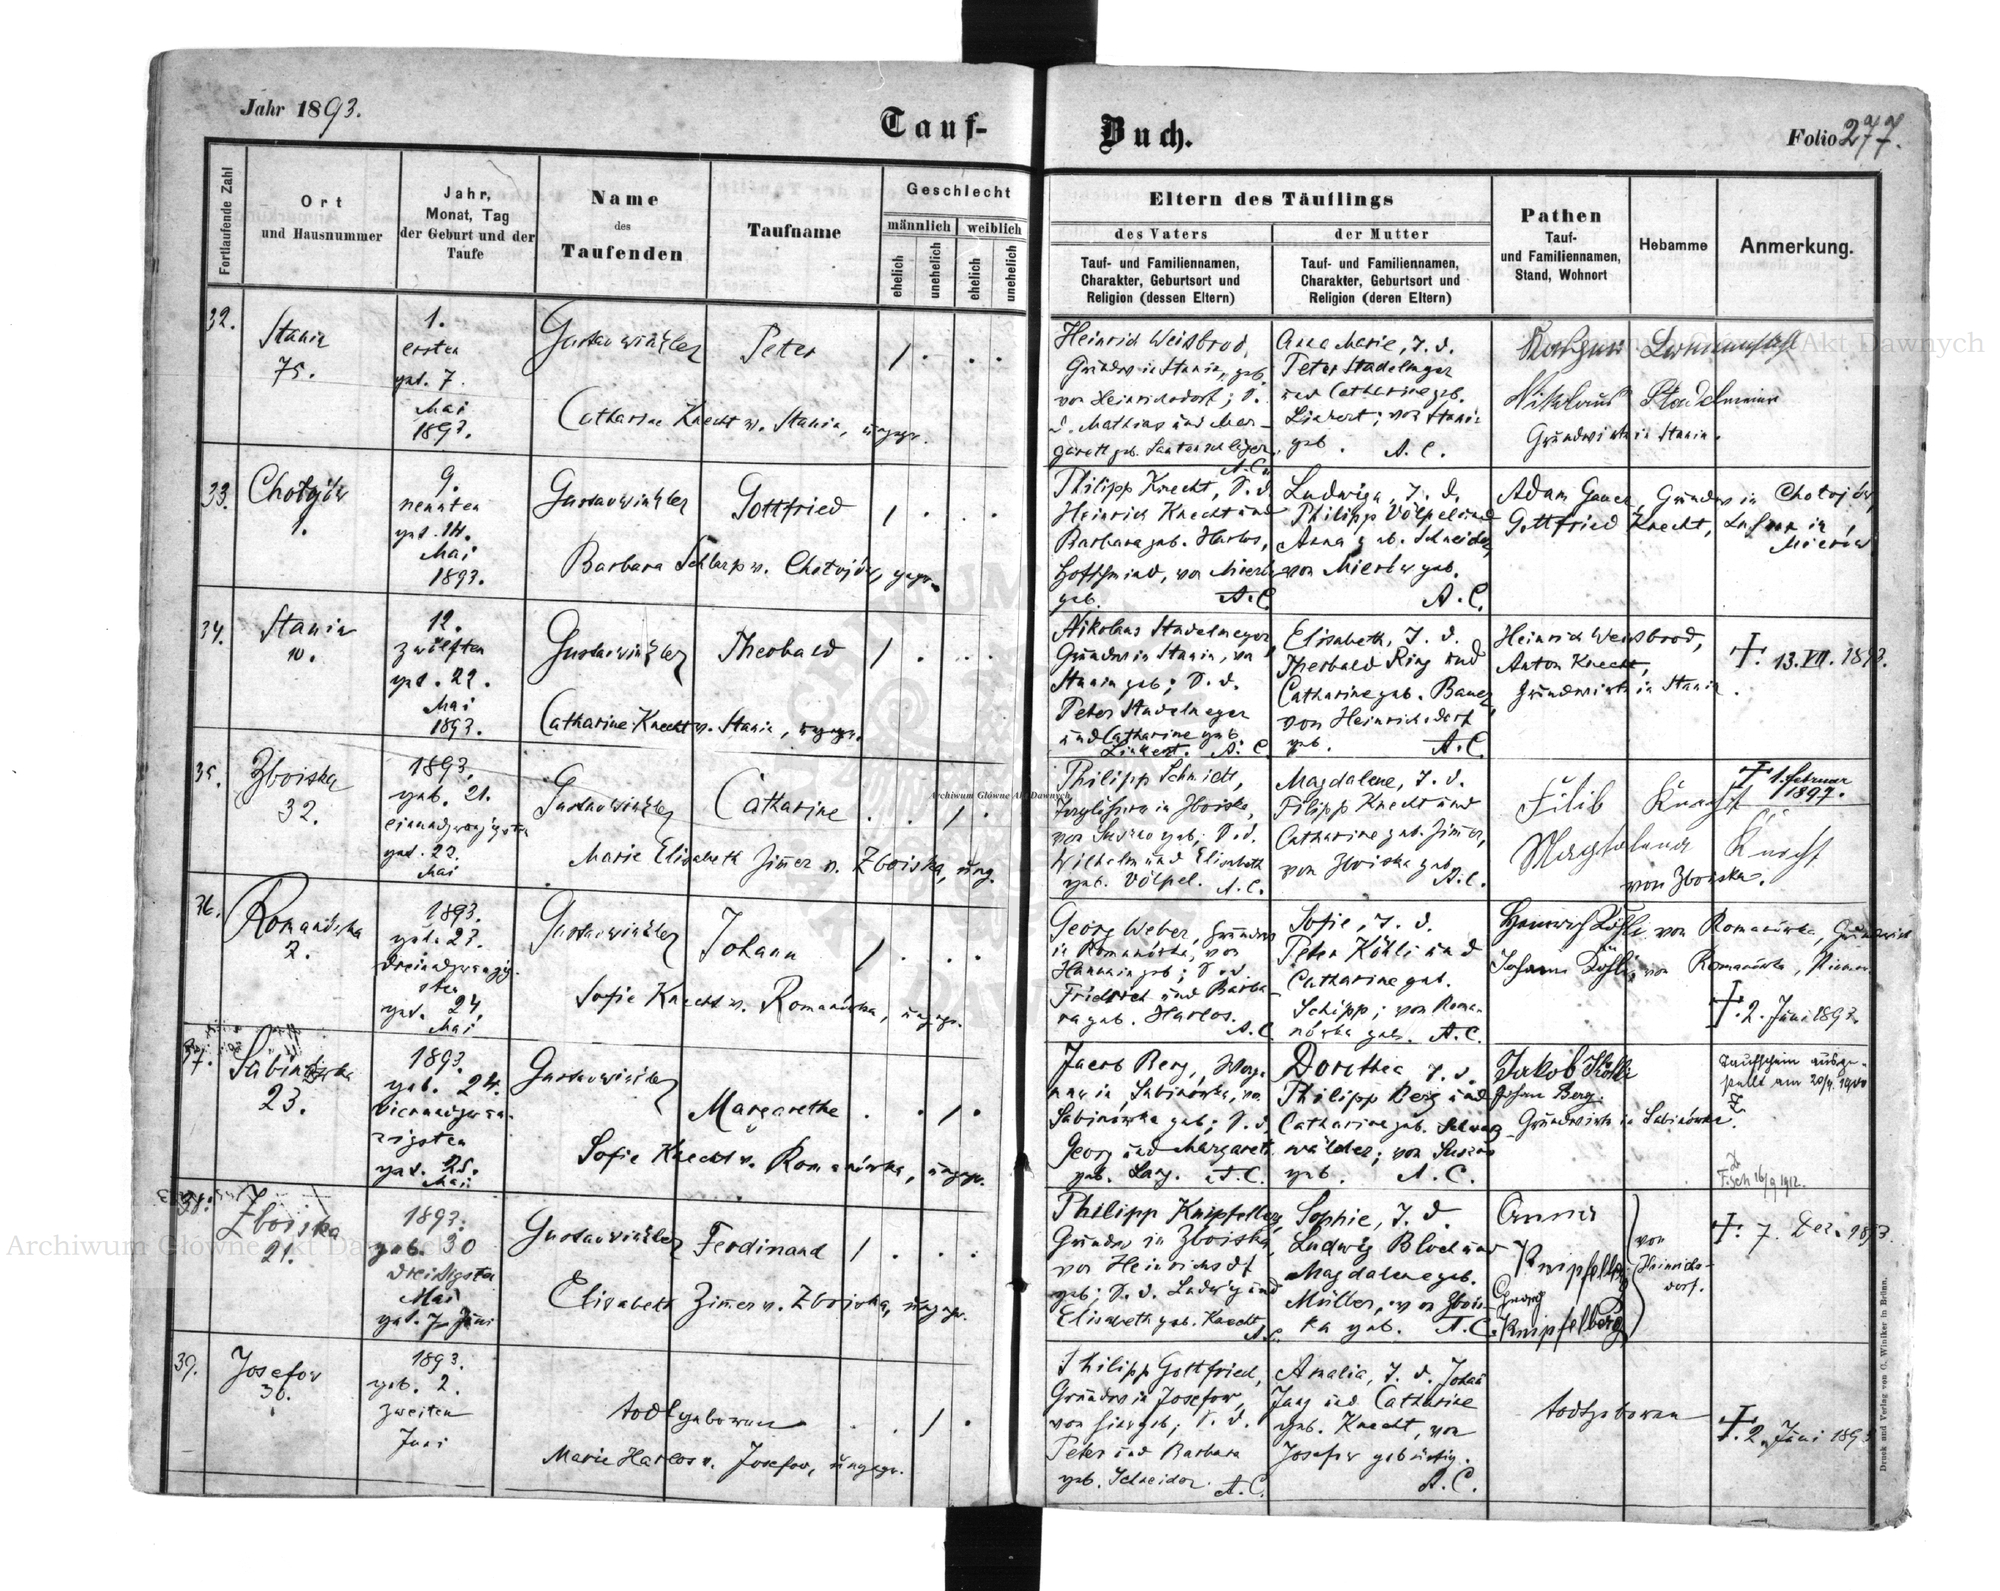 Jahr 1893.
Tauf-Buch.
Folio 277.
Fortlaufende Zahl
Ort
und Hausnummer
Jahr,
Monat, Tag
der Geburt und der
Taufe
Name
des
Taufenden
Taufname
Geschlecht
männlich
weiblich
ehelich
unehelich
ehelich
unehelich
Eltern des Täuflings
des Vaters
der Mutter
Tauf- und Familiennamen,
Charakter, Geburtsort und
Religion (dessen Eltern)
Tauf- und Familiennamen,
Charakter, Geburtsort und
Religion (deren Eltern)
Pathen
Tauf-
und Familiennamen,
Stand, Wohnort
Hebamme
Anmerkung.
32.
Stanin
75.
1.
ersten
get. 7.
Mai
1893.
Gustav Winkler
Peter
Catharine Knecht v. Stanin, ungepr.
Heinrich Weisbrod,
Grundw. in Stanin, geb.
von Heinrichsdorf; S.
d. Mathias und Mar-
garett geb.
A. C.
Anna Marie, T. d.
Peter Stadelmeyer
und Catharine geb.
Linkert; von Stanin
geb. A. C.
Nikolaus Stadelmeier
Grundwirte in Stanin.
33.
Chotojów
1.
9.
neunten
get. 14.
Mai
1893.
Gustav Winkler
Gottfried
Barbara Schlarp v. Chotojów, gepr.
Philipp Knecht, S. d.
Heinrich Knecht und
Barbara geb. Harlos,
von Mierów
geb. A. C.
Ludwiga, T. d.
Philipp Völpel und
Anna geb. Schneider
von Mierów geb.
A. C.
Adam Gauer, Grundw. in Chotojów,
Gottfried Knecht, in
Mierów
34.
Stanin
10.
12.
zwölften
get. 22.
Mai
1893.
Gustav Winkler
Theobald
Catharine Knecht v. Stanin, ungepr.
Nikolaus Stadelmeyer
Grundw. in Stanin, von
Stanin geb; S. d.
Peter Stadelmeyer
und Catharine geb.
Linkert. A. C.
Elisabeth, T. d.
Theobald Ring und
Catharine geb. Bauer,
von Heinrichsdorf
geb. A. C.
Heinrich Weisbrod,
Anton Knecht,
Grundwirte in Stanin.
†. 13. VII. 1893.
35.
Zboiska
32.
1893.
geb. 21.
einundzwanzigsten
get. 22.
Mai
Gustav Winkler
Catharine
Marie Elisabeth Zimmer v. Zboiska, ung.
Philipp Schmidt,
in Zboiska,
von geb; S. d.
Wilhelm und Elisabeth
geb. Völpel. A. C.
Magdalene, T. d.
Filipp Knecht und
Catharine geb. Zimmer,
von Zboiska geb.
A. C.
Filib Knecht
Magdalena Knecht
von Zboiska.
† 1. Februar
1897.
36.
Romanówka
2.
1893.
geb. 23.
dreiundzwanzig-
sten
get. 24.
Mai
Gustav Winkler
Johann
Sofie Knecht v. Romanówka, ungepr.
Georg Weber, Grundw.
in Romanówka, von
Hanunin geb; S. d.
Friedrich und Barba-
ra geb. Harlos.
A. C.
Sofie, T. d.
Peter Köhli und
Catharine geb.
Schipp; von Roma-
nówka geb. A. C.
Heinrich Köhli von Romanówka, Grundwirt
Johann Köhli, von Romanówka,
†. 2. Juni 1893.
37.
Sabinówka
23.
1893.
geb. 24.
vierundzwan-
zigsten
get. 25.
Mai
Gustav Winkler
Margarethe
Sofie Knecht v. Romanówka, ungepr.
Jacob Berg,
in Sabinówka, von
Sabinówka geb; S. d.
Georg und Margareth
geb. Lang. A. C.
Dorothea T. d.
Philipp Berg und
Catharine geb. Schwarz-
wälder; von
geb. A. C.
Jakob Köhli
Johann Berg.
Grundwirte in Sabinówka.
Taufschein ausge-
stellt am 20/4. 1900
16/9 1912.
38.
Zboiska
21.
1893.
geb. 30
dreissigsten
Mai
get. 7. Juni
Gustav Winkler
Ferdinand
Elisabeth Zimmer v. Zboiska, ungepr.
Philipp Knipfelberg,
Grundw. in Zboiska,
von Heinrichsdf
geb; S. d. Ludwig und
Elisabeth geb. Knecht,
A. C.
Sophie, T. d.
Ludwig Bloch und
Magdalene geb.
Müller, von Zbois-
ka geb. A. C.
Anna
Knipfelberg
Georg
Knipfelberg
von
Heinrichs-
dorf.
†. 7. Dez. 1893.
39.
Josefov
30.
1893.
geb. 2.
zweiten
Juni
todtgeboren
Marie Harlos v. Josefow, ungepr.
Philipp Gottfried,
Grundw. in Josefow,
von hier geb; S. d.
Peter und Barbara
geb. Schneider. A. C.
Amalia, T. d. Johan
Jung und Catharine
geb. Knecht, von
Josefow gebürtig.
A. C.
todtgeboren
†. 2. Juni 1893
Druck und Verlag von C. Winiker in Brünn.
Archiwum Główne Akt Dawnych
Archiwum Główne Akt Dawnych
Archiwum Główne Akt Dawnych